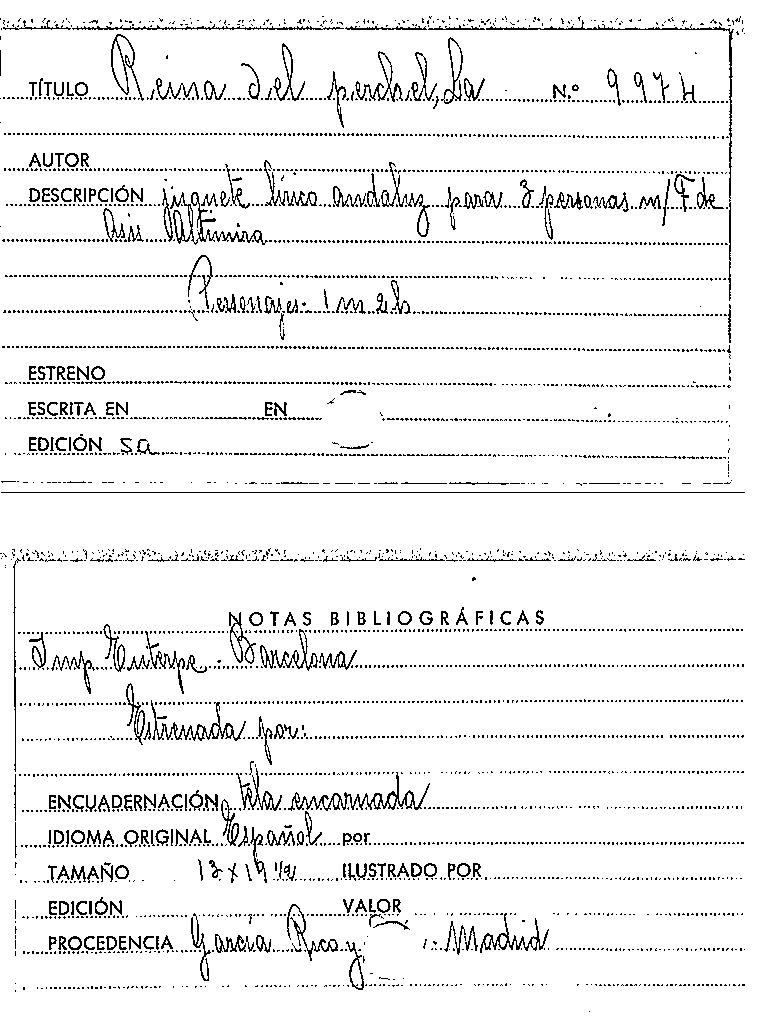 TÍTULO Reina del perchel, La N.º 9974
AUTOR
DESCRIPCIÓN juguete lírico andaluz para 3 personas m/ F de
Asis Altimira
Personajes- 1 m 2 h
ESTRENO
ESCRITA EN EN
EDICIÓN sa
NOTAS BIBLIOGRÁFICAS
Imp Euterpe - Barcelona
Estrenada por:
ENCUADERNACIÓN tela encarnada
IDIOMA ORIGINAL Español por
TAMAÑO 13 x 19 1/2 ILUSTRADO POR
EDICIÓN VALOR
PROCEDENCIA García Rico y - Madrid